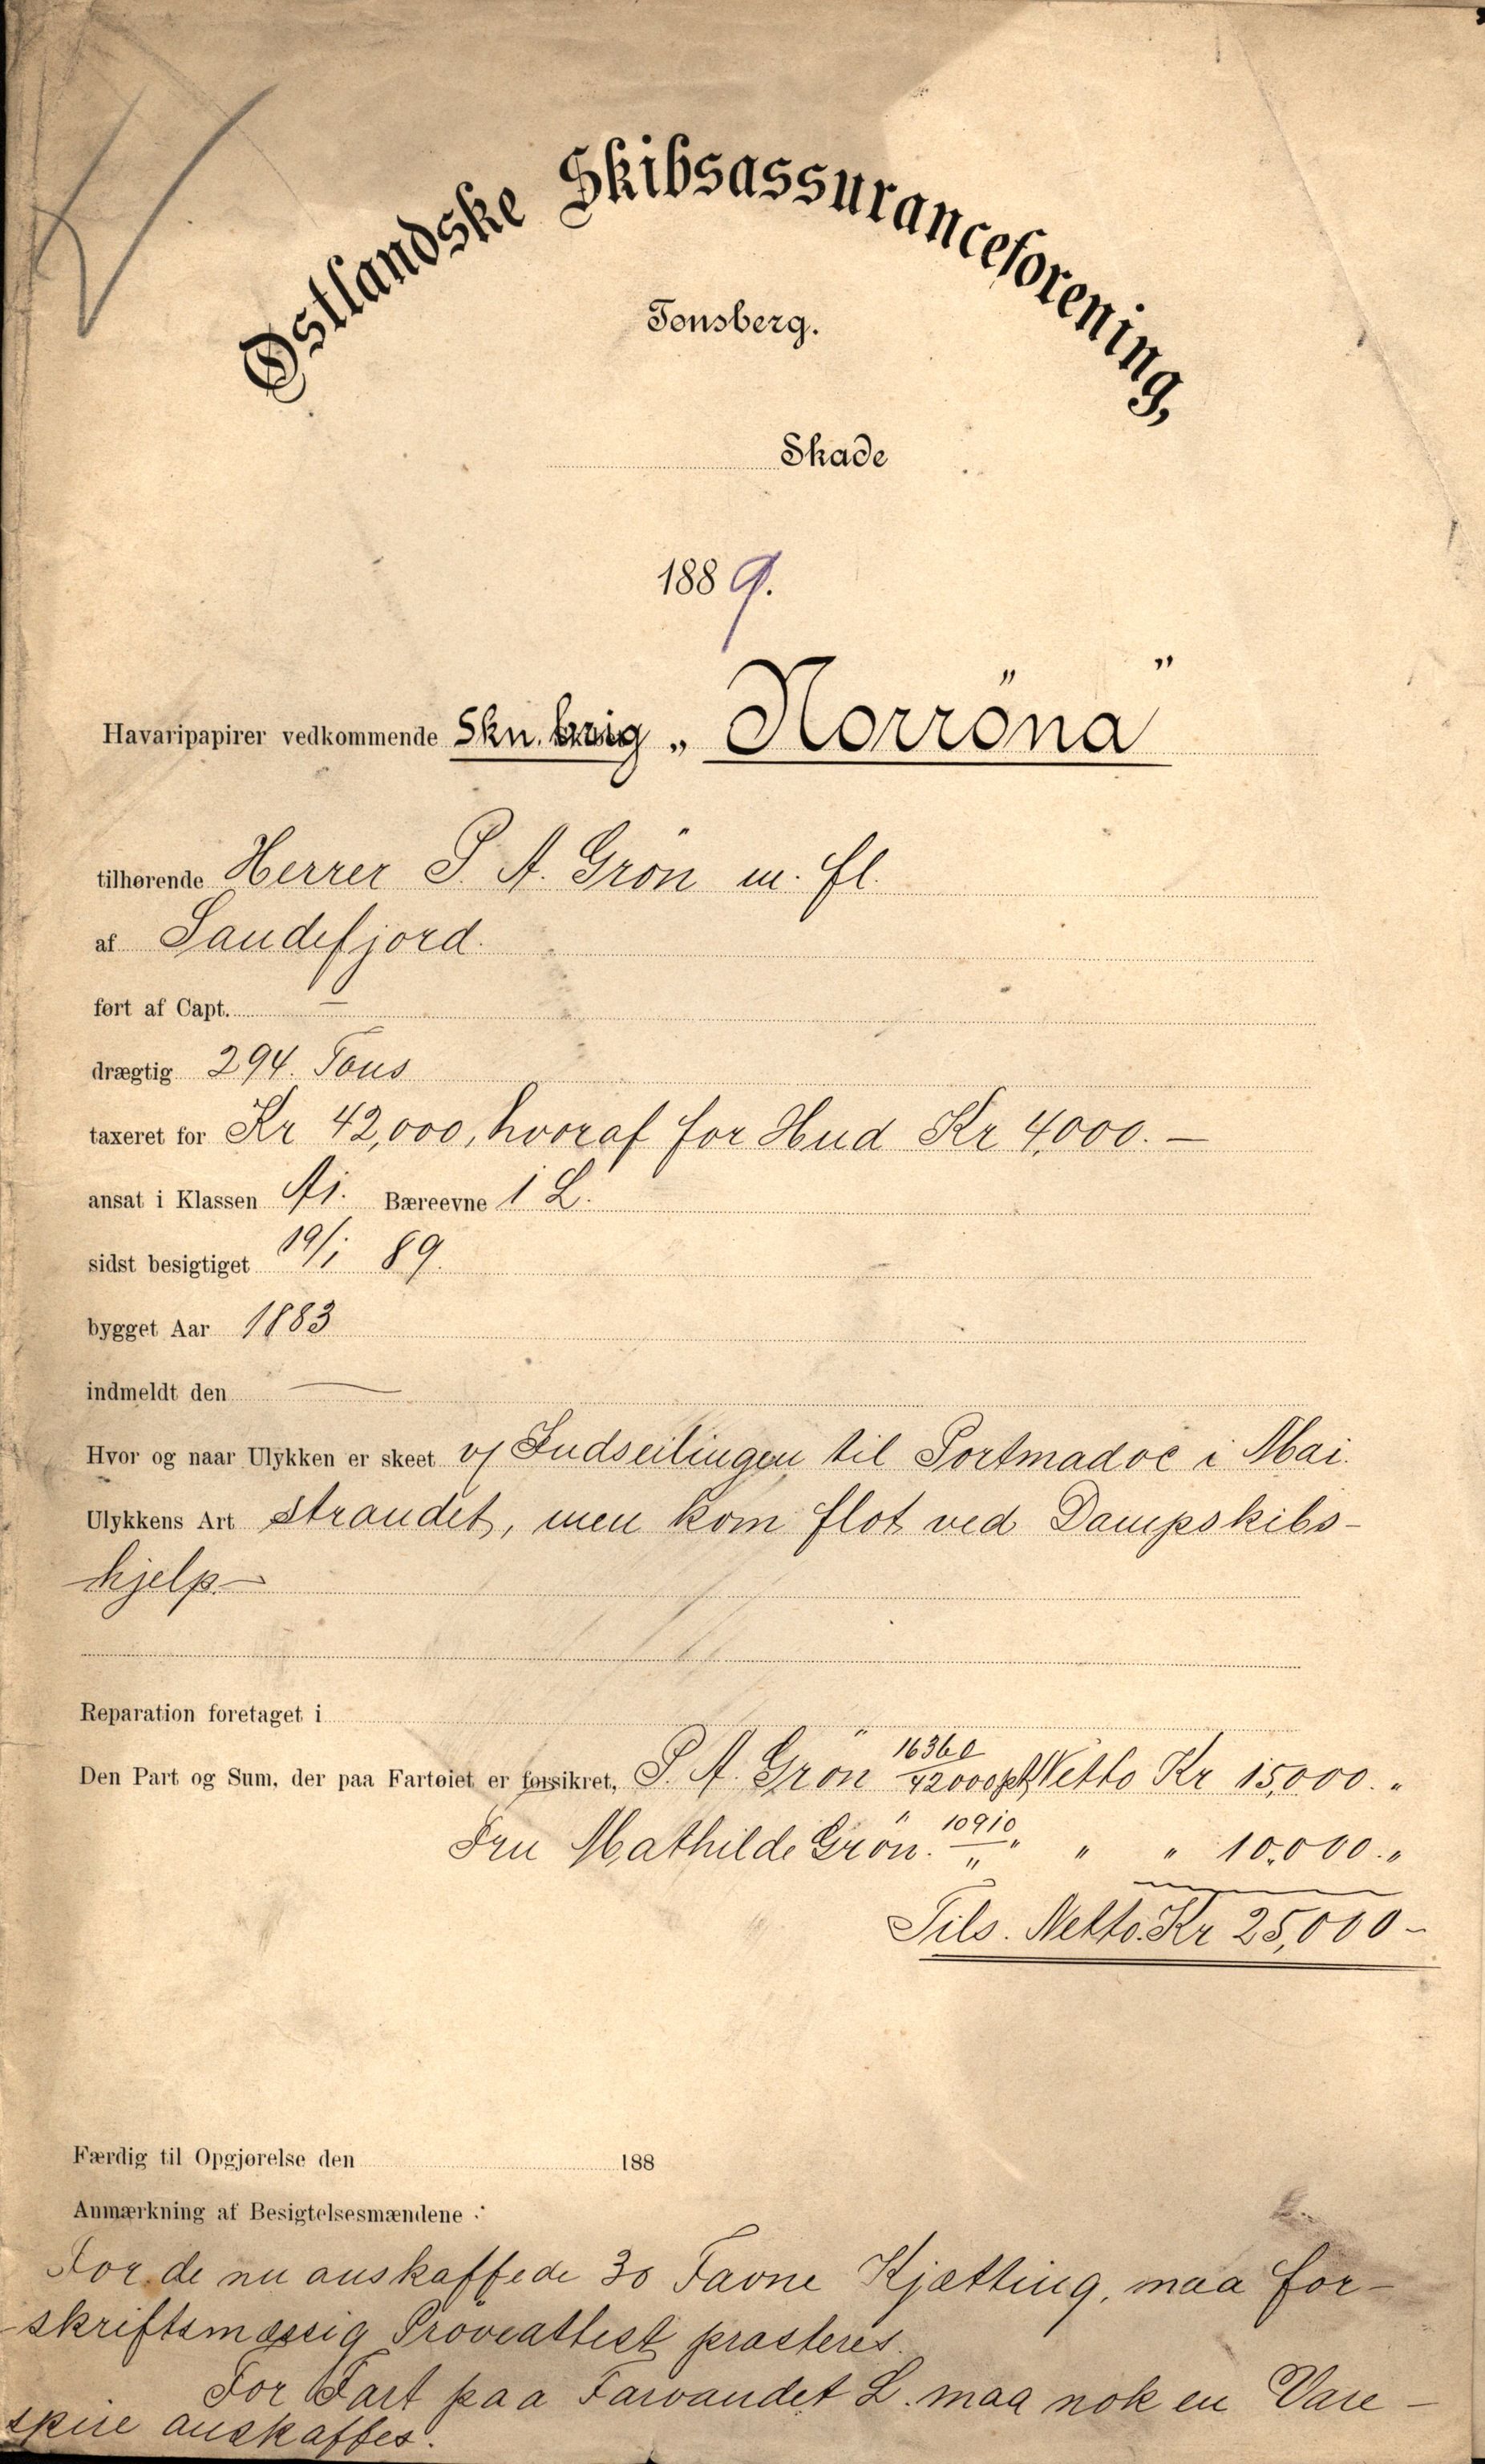 Østlandske Skibsassuranceforening,
Tønsberg.
Skade
1889.
Havaripapirer vedkommende Skn. brig „Norröna”
tilhørende Herrer P. A. Grön m. fl.
af Sandefjord.
ført af Capt. —
drægtig 294. Tons
taxeret for Kr 42,000, hvoraf for Hud Kr 4,000. —
ansat i Klassen A1. Bæreevne 1 L.
sidst besigtiget 19/1 89.
bygget Aar 1883
indmeldt den —
Hvor og naar Ulykken er skeet v/ Indseilingen til Portmadoc i Mai.
Ulykkens Art strandet, men kom flot ved Dampskibs-
hjelp.—
Reparation foretaget i
Den Part og Sum, der paa Fartøiet er forsikret, P. A. Grön 16360/42000 pt Netto Kr 15,000. „
Fru Mathilde Grön. 10910/„ " " " 10,000. „
Tils. Netto. Kr 25,000 -
Færdig til Opgjørelse den 188
Anmærkning af Besigtelsesmændene :
For de nu anskaffede 30 Favne Kjætting, maa for-
skriftsmæssig Pröveattest præsteres.
For Fart paa Farvandet L. maa nok en Vare-
spire anskaffes.